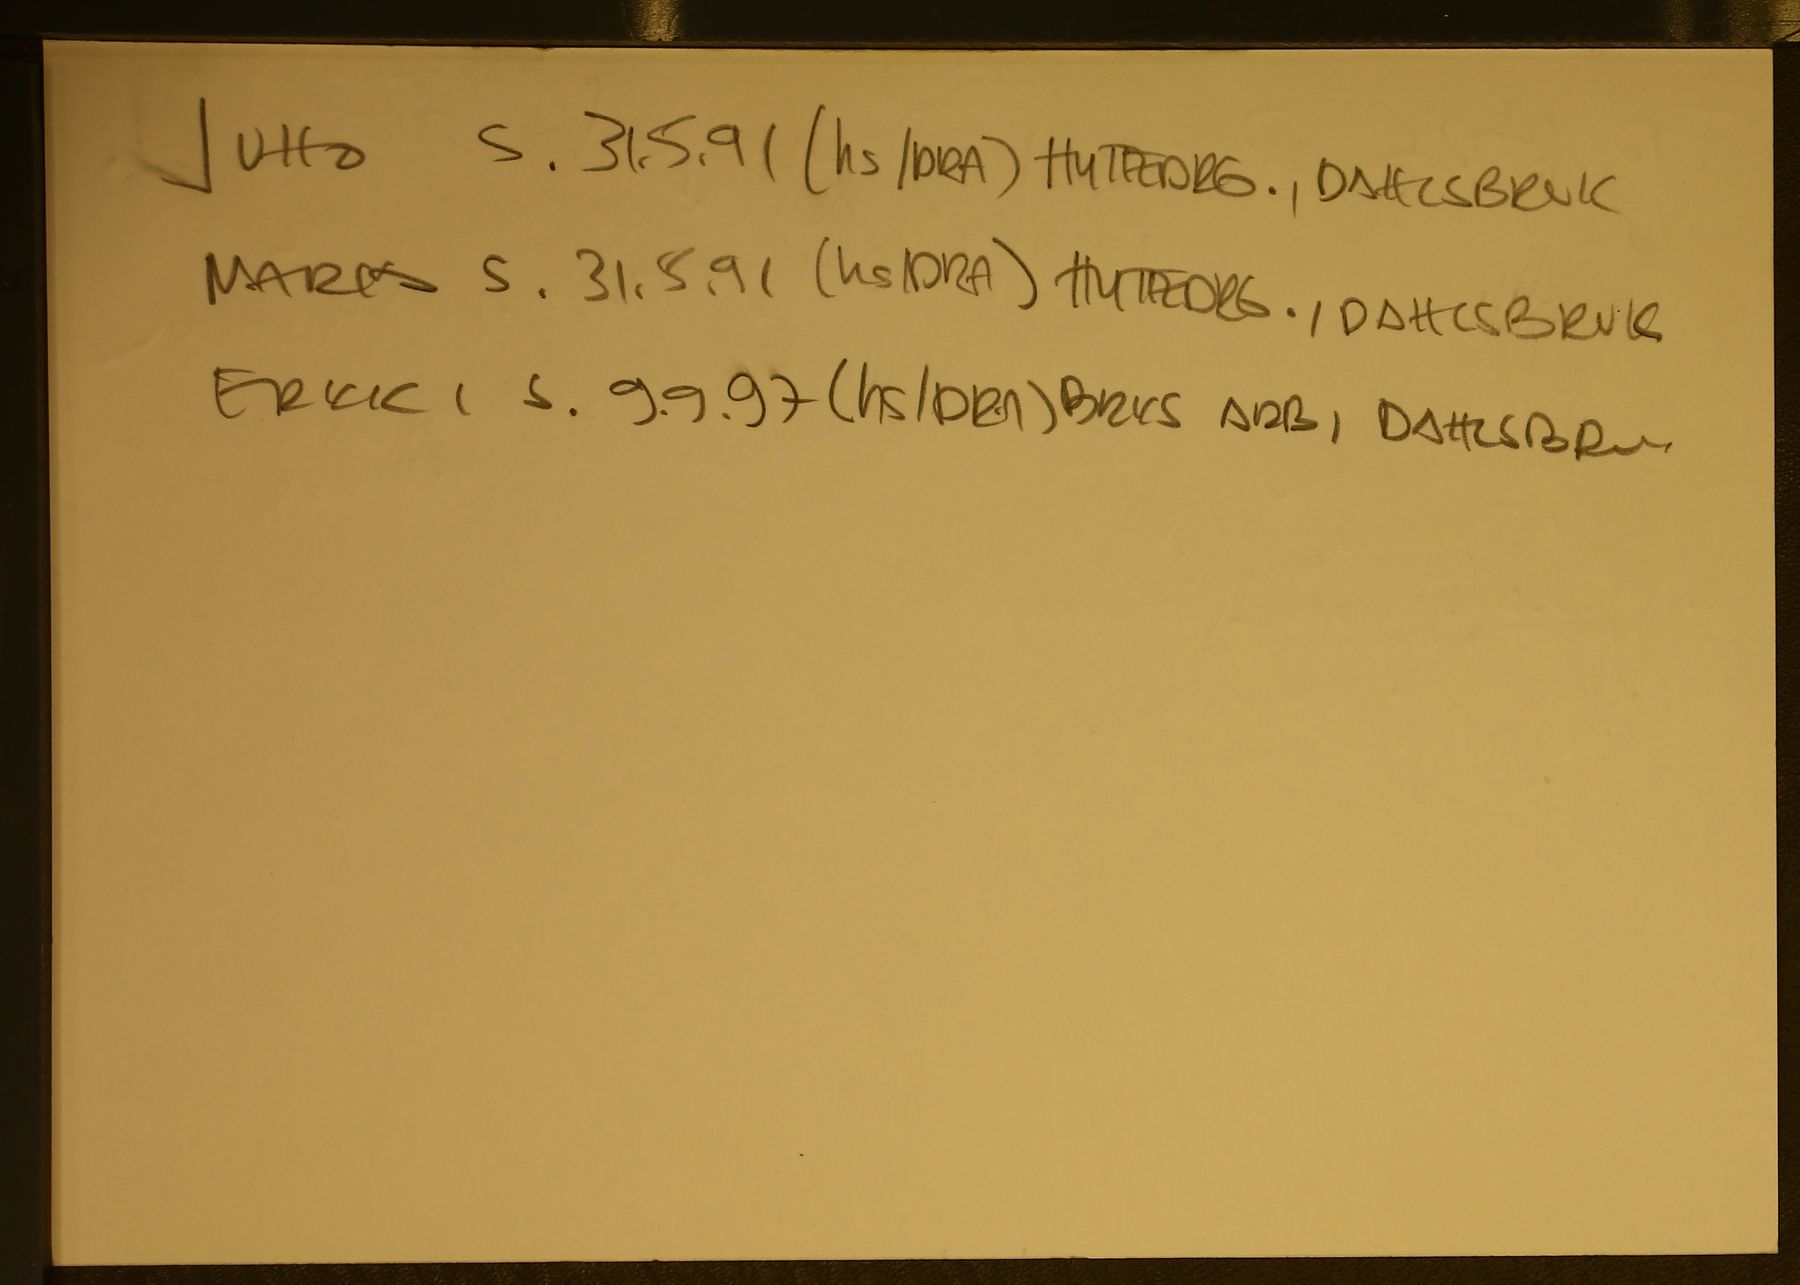 JUHO S. 31.5.91 (hs/DRA) HYTTEDRG., DAHLSBRUK
MARKO S. 31.5.91 (hs/DRA) HYTTEDRG., DAHLSBRUK
ERKKI S. 9.9.97 (hs/DRA) BRUKS ARB, DAHLSBRUK